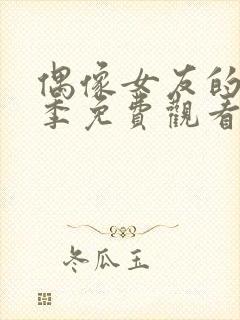 偶像女友的
季免費觀看
冬瓜玉